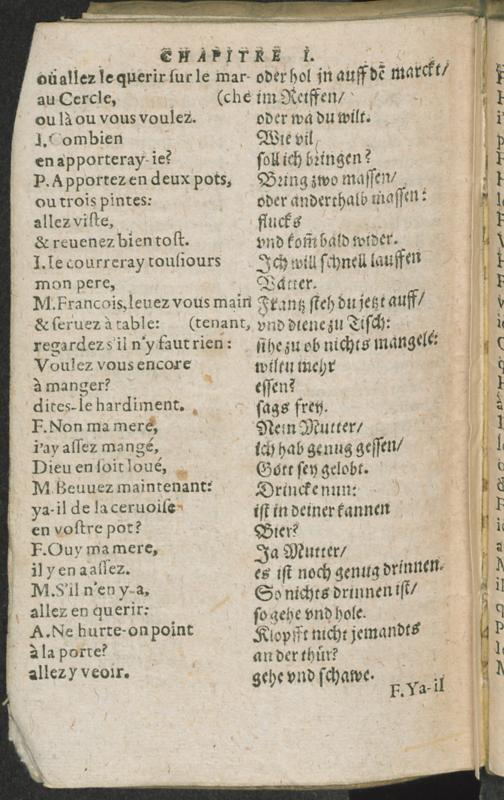 CHAPITRE I.
où allez le querir sur le mar- oder hol jn auff dẽ marckt/
au Cercle, (ché im Reiffen/
ou là ou vous voulez. oder wa du wilt.
I. Combien Wie vil
en apporteray-ie? soll ich bringen?
P. Apportez en deux pots, Bring zwo massen/
ou trois pintes: oder anderthalb massen:
allez viste, flucks
& reuenez bien tost. vnd kom̃ bald wider.
I. Ie courreray tousiours Ich will schnell lauffen
mon pere, Vatter.
M. Francois, leuez vous main Frantz steh du jetzt auff/
& seruez à table: (tenant, vnd diene zu Tisch:
regardez s'il n'y faut rien: sihe zu ob nichts mangele:
Voulez vous encore wiltu mehr
à manger? essen?
dites-le hardiment. sags frey.
F. Non ma mere, Nein Mutter/
i'ay assez mangé, ich hab genug gessen/
Dieu en soit loué, Gott sey gelobt.
M. Beuuez maintenant: Drincke nun:
ya-il de la ceruoise ist in deiner kannen
en vostre pot? Bier?
F. Ouy ma mere, Ja Mutter/
il y en a assez. es ist noch genug drinnen.
M. S'il n'en y-a, So nichts drinnen ist/
allez en querir: so gehe vnd hole.
A. Ne hurte-on point Klopfft nicht jemandts
à la porte? an der thür?
allez y veoir. gehe vnd schawe.
F. Ya-il